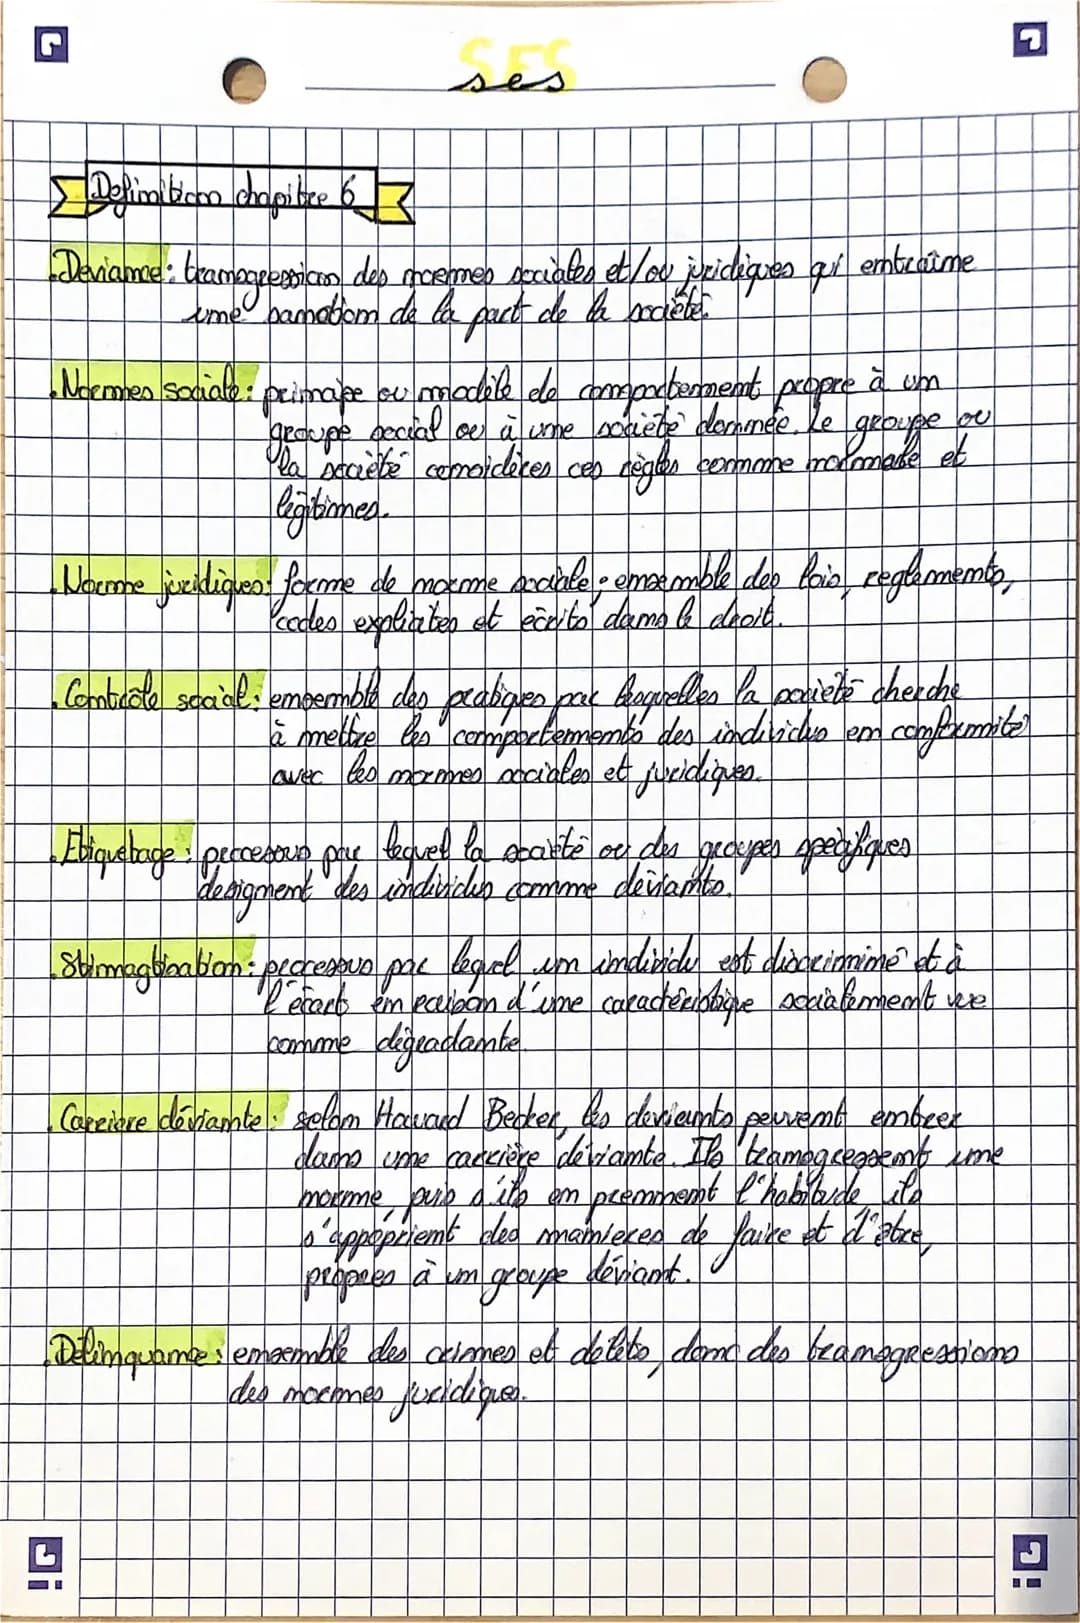 SES
ses
Definition chapitre 6
.Deviance : transgression des normes sociales et/ou juridiques qui entraîne
une sanction de la part de la société.
.Normes sociale : principe ou modèle de comportement propre à un
groupe social ou à une société donnée. Le groupe ou
la société considères ces règles comme normale et
légitimes.
.Norme juridiques : forme de norme sociale ; ensemble des lois, reglements,
codes explicites et écrits dans le droit.
.Contrôle social : ensemble des pratiques par lesquelles la société cherche
à mettre les comportements des individus en conformité
avec les normes sociales et juridiques.
.Etiquetage : processus par lequel la société ou des groupes spécifiques
designent des individus comme déviants.
.Stimagtisation : processus par lequel un individu est discriminé et à
l'écart en raison d'une caractéristique socialement vue
comme dégradante.
.Carrière déviante : selon Howard Becker, les deviants peuvent entrer
dans une carrière déviante. Ils transgressent une
norme, puis s'ils en prennent l'habitude, ils
s'appoprient des manieres de faire et d'être,
propres à un groupe déviant.
.Délinquance : ensemble des crimes et délits, donc des transgressions
des normes juridiques.